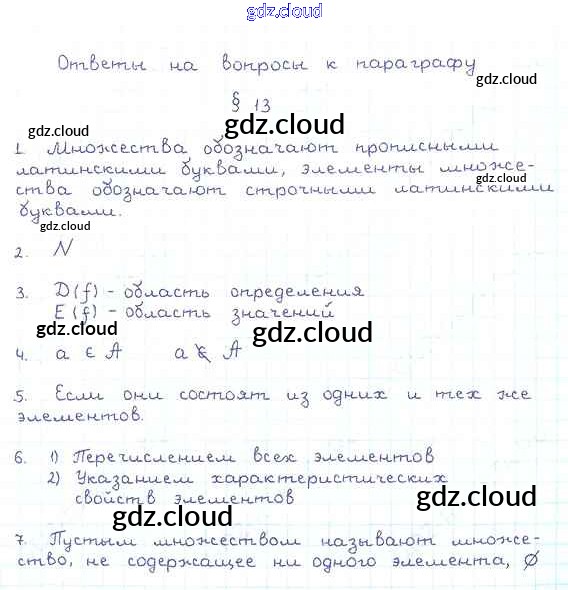 gdz.cloud
Ответы на вопросы к параграфу
gdz.cloud
§ 13
gdz.cloud gdz.cloud
1 Множества обозначают прописными
латинскими буквами, элементы множе-
ства обозначают строчными латинскими
gdz.cloud
буквами.
gdz.cloud
2. N
3. D(f) - область определения
E(f) - область значений
gdz.cloud gdz.cloud
4. a ∈ A a ∉ A
5. Если они состоят из одних и тех же
элементов.
6. 1) Перечислением всех элементов
2) Указанием характеристических
свойств элементов
gdz.cloud
gdz.cloud
7. Пустым множеством называют множе-
ство, не содержащее ни одного элемента, ∅